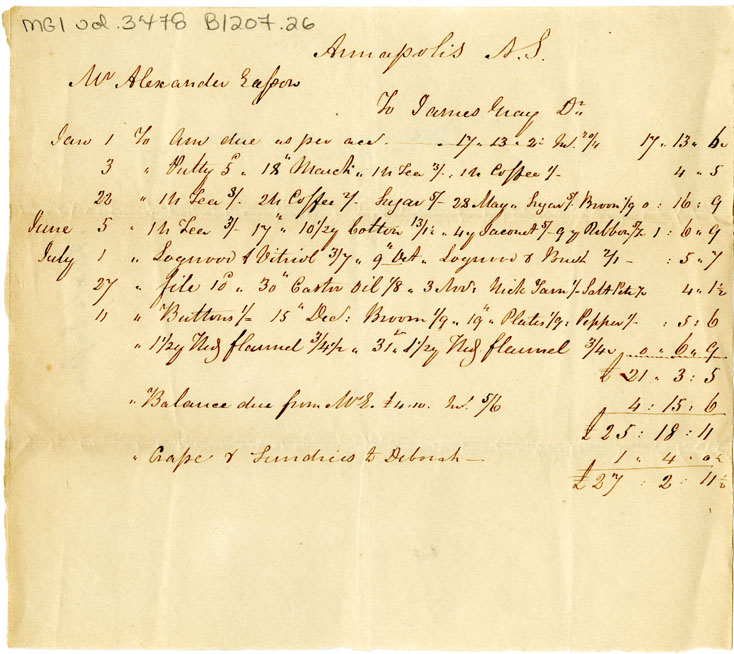 MG1 vol. 3478 B1207.26
Annapolis N.S.
Mr Alexander Easson
To James Gray Dr
Jan 1 To Am due as per acc. 17 " 13 " 2: Int. 17 " 13 " 6
3 " Putty 5d " 18" March " 1 lb Tea 3/- 1 lb Coffee 1/- 4 " 5
22 " 1 lb Tea 3/- 2 lb Coffee 2/- Sugar 5/- 28 May " Sugar 5/- Broom 1/9 0 : 16 : 9
June 5 " 1 lb Tea 3/- 17" " 10 1/2 y Cotton 13/1 1/2 " 4 y Jaconet 9 y Ribbon 1 : 6 " 9
July 1 " Logwood & Vitriol 3/7 " 9" Oct " Logwood & 2/1 - : 5 " 7
27 " file 10d " 30" Castor Oil 1/8 " 3 Nov: 1/- Salt Petre 4 " 1 1/2
11 " Buttons 1/- 15" Dec: Broom 1/9 " 19" Plates 1/9: Pepper 1/- : 5 : 6
" 1 1/2 y Red flannel 3/4 1/2 " 31" 1 1/2 y Red flannel 3/4 1/2 0 " 6 " 9
£ 21 " 3 : 5
" Balance due from Mr E. £4.10. Int. 5/6 4 : 15 : 6
£ 25 : 18 : 11
" Crape & Sundries to Deborah - 1 " 4 " 0 1/2
£ 27 : 2 : 11 1/2